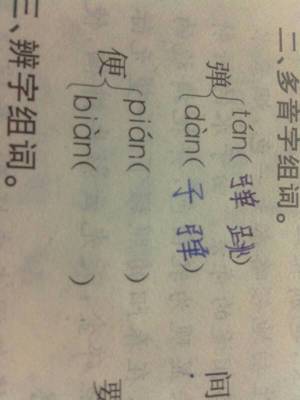 二、多音字组词。
弹 tán(弹跳)
dàn(子弹)
便 pián( )
biàn( )
三、辨字组词。
间
要